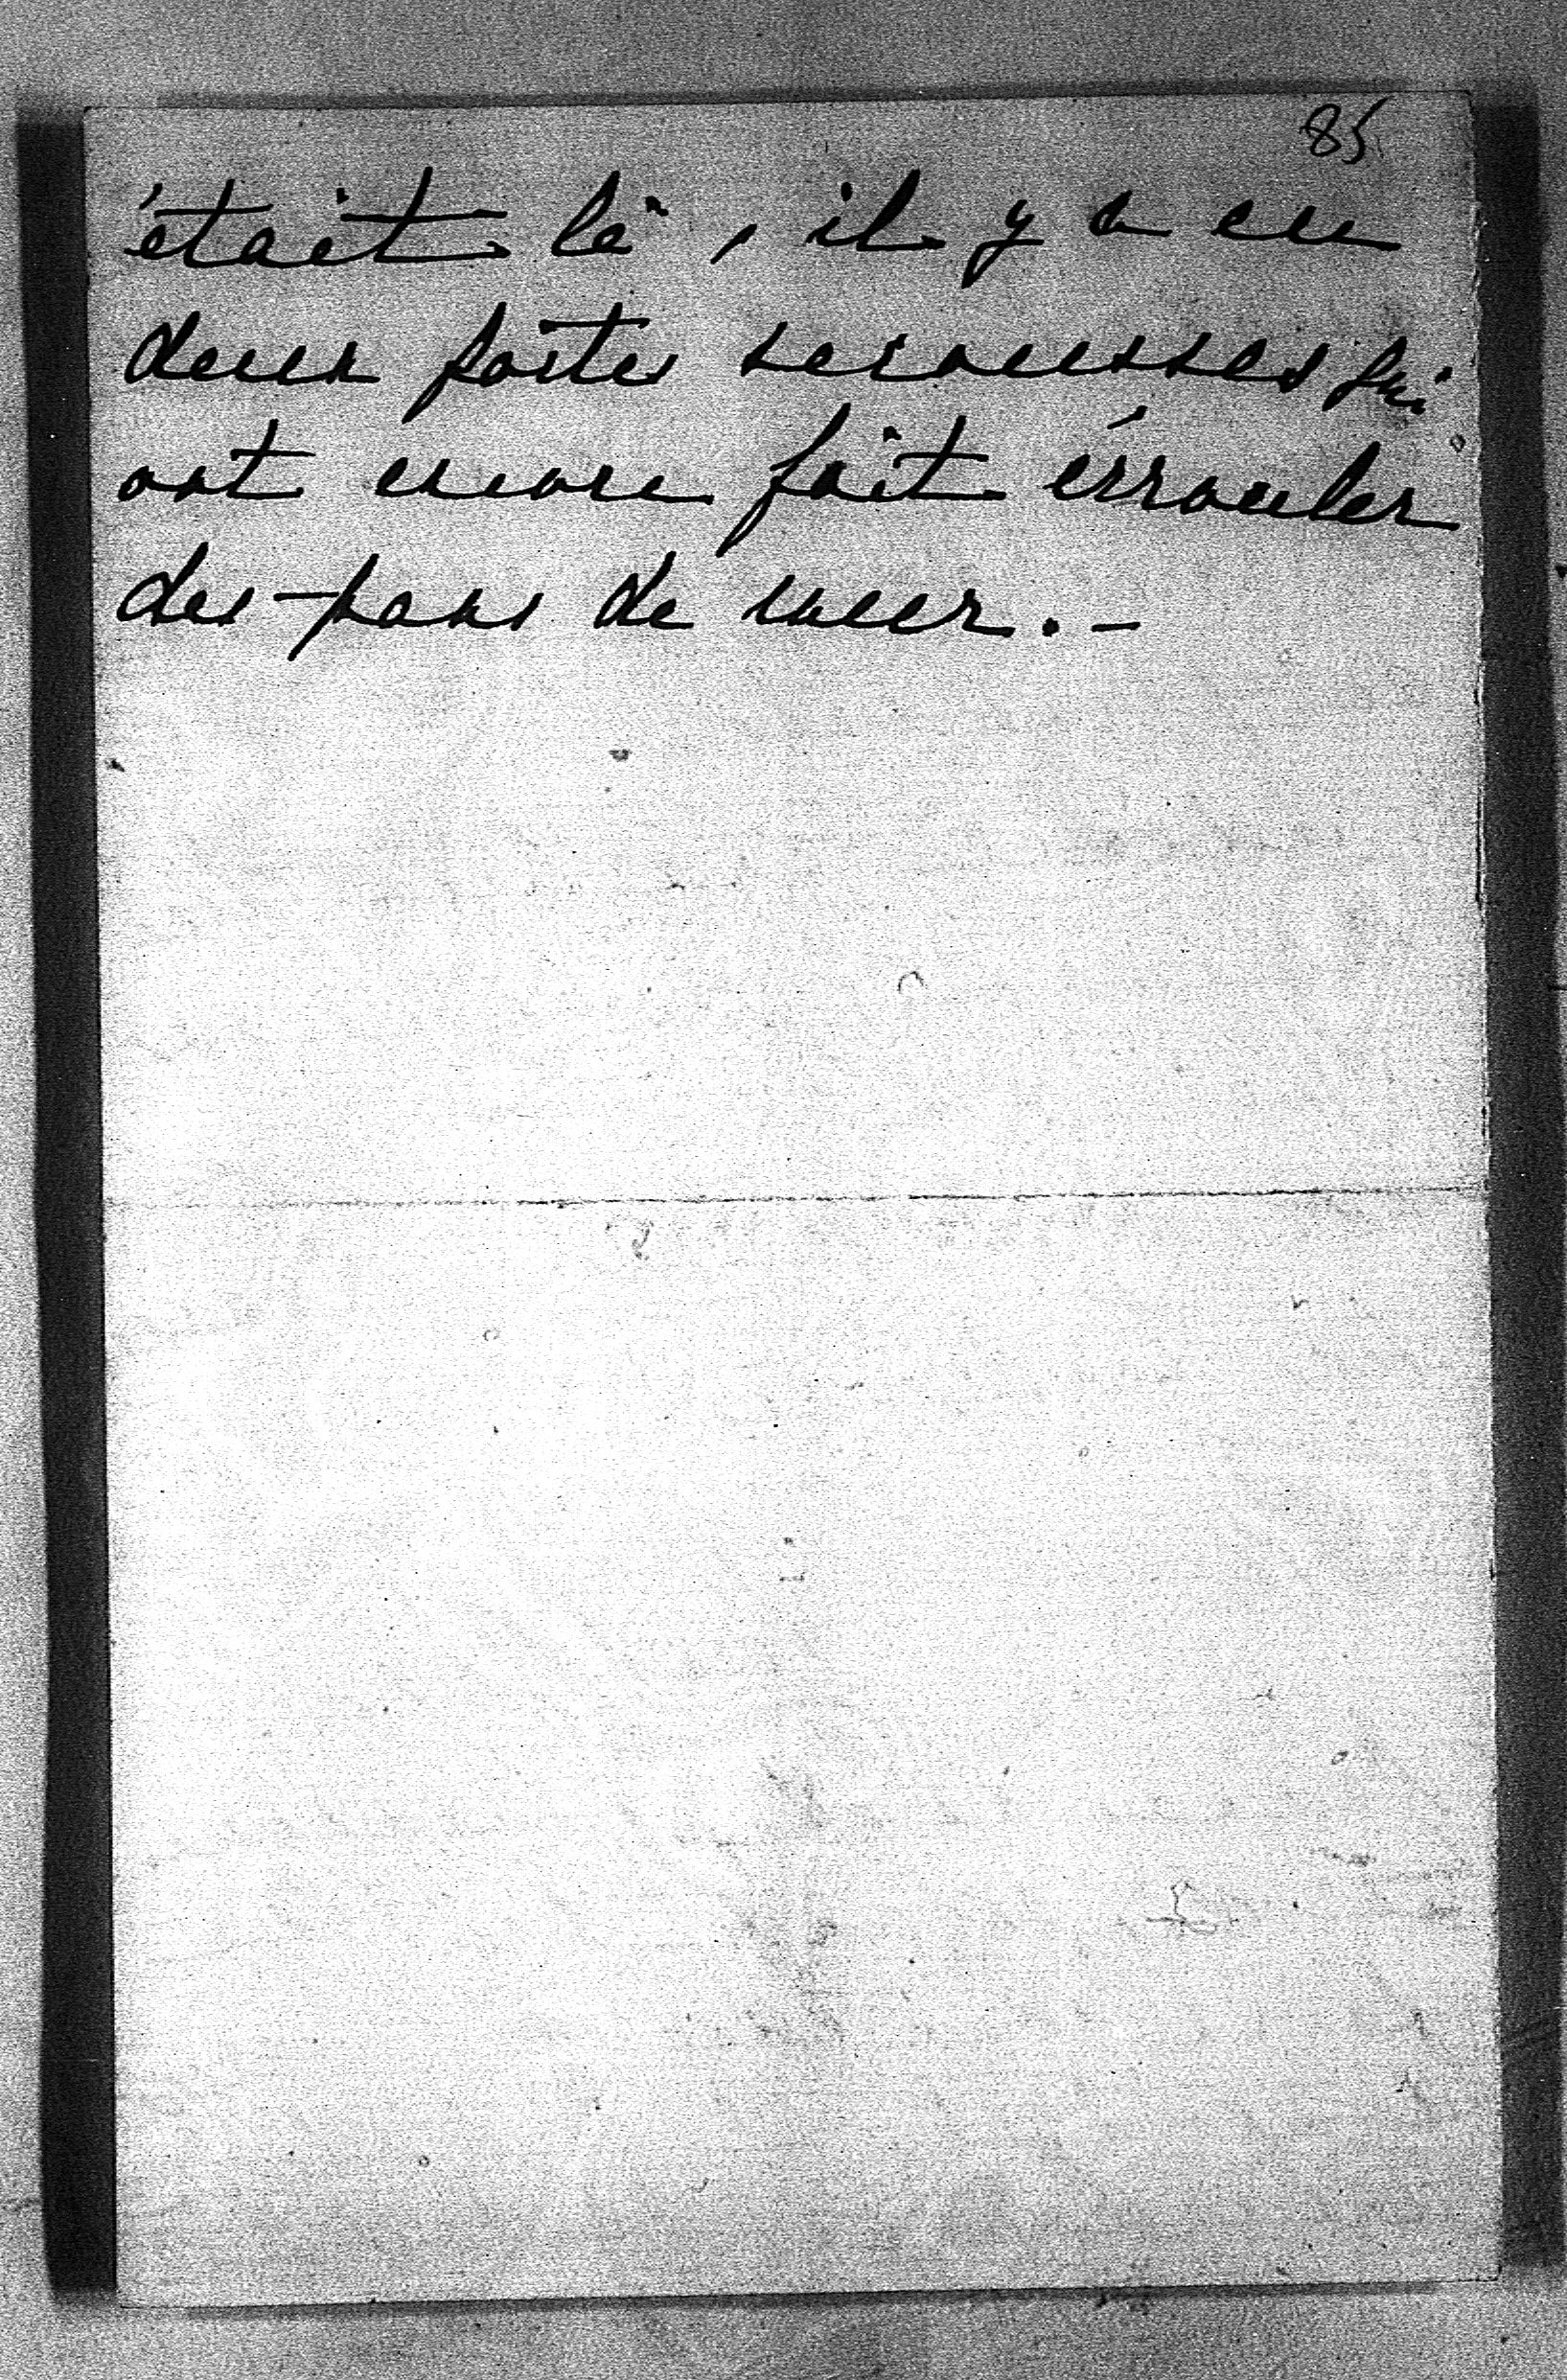 85
était là, il y a eu
deux fortes secousses qui
ont encore fait écrouler
des pans de mur. -